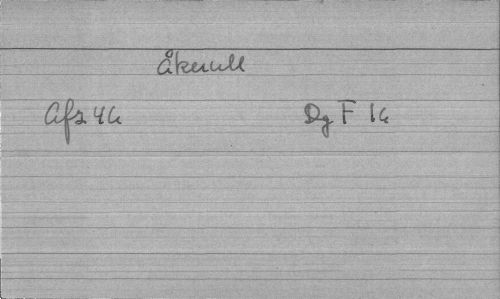 Åkerull
Afz 4a Dg F 1a